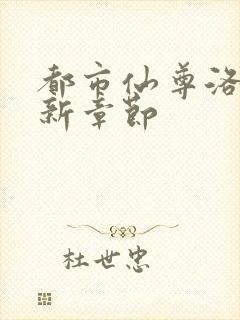 都市仙尊洛
新章节
杜世忠